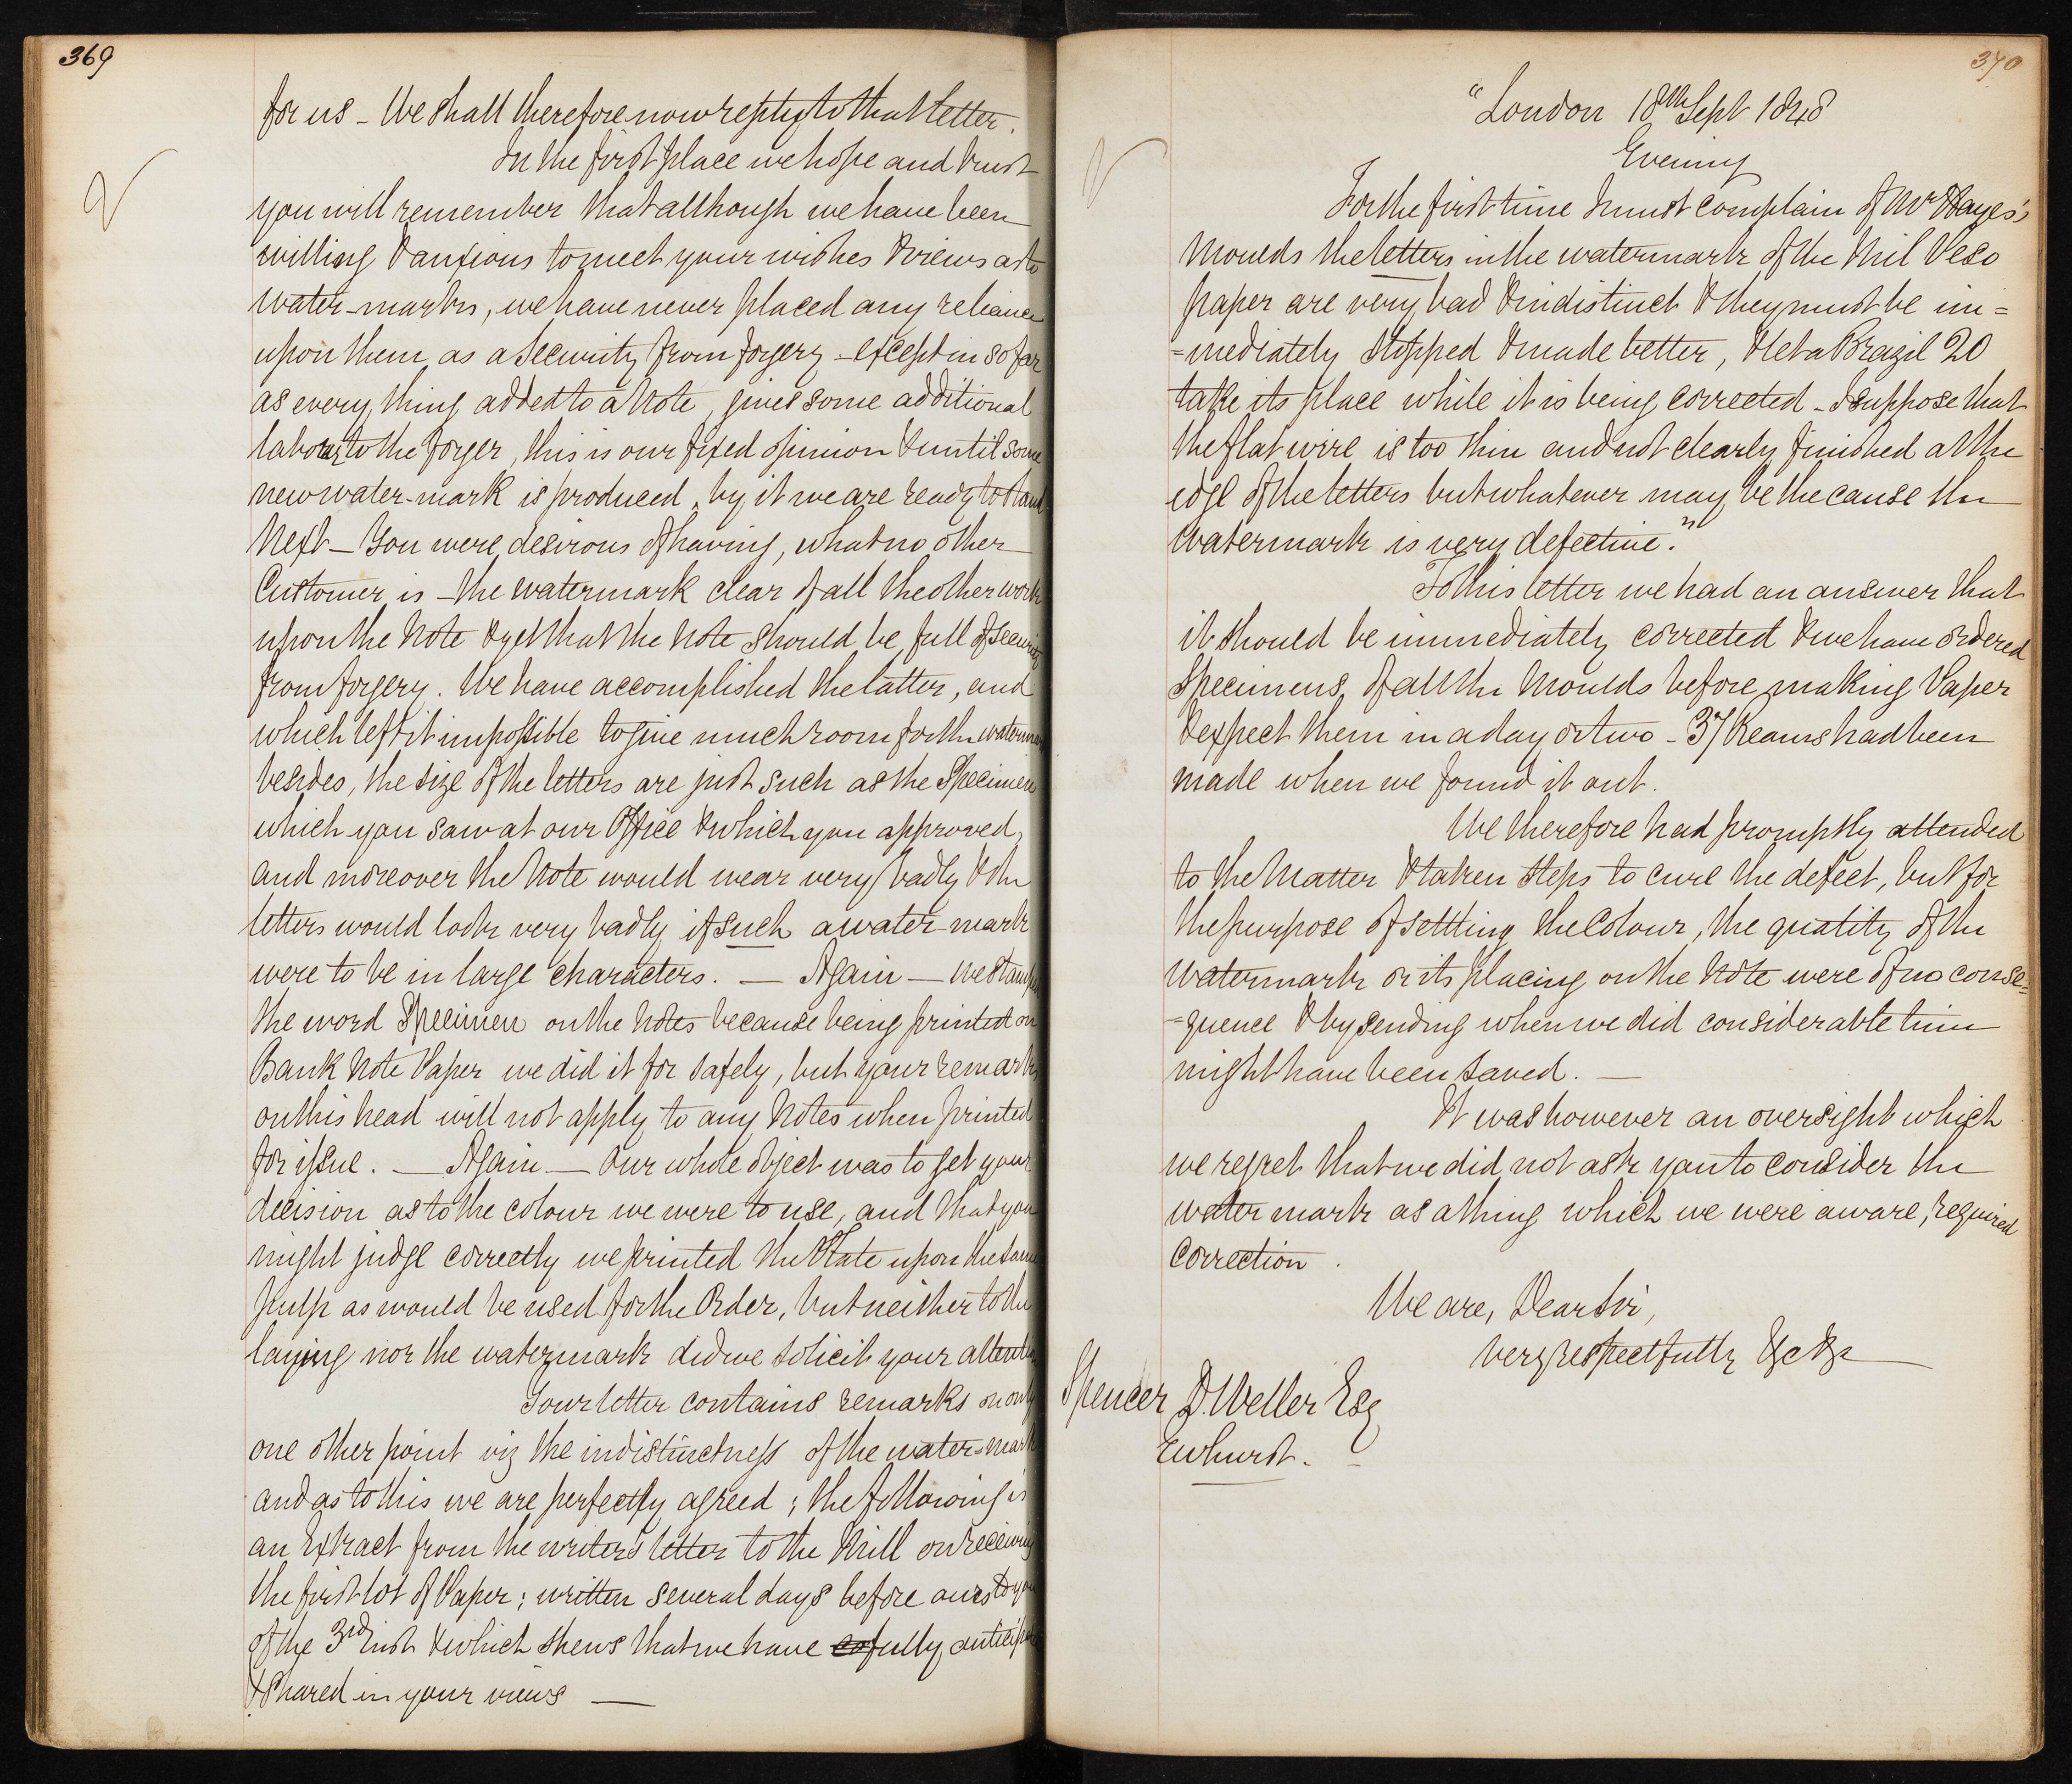 369
for us - We shall therefore now reply to that letter.
In the first place we hope and trust
you will remember that although we have been
willing & anxious to meet your wishes & views as to
water-marks, we have never placed any reliance
upon them as a security from forgery - except in so far
as every thing added to a Note, gives some additional
labour to the forger, this is our fixed opinion & until some
new water-mark is produced, by it we are ready to stand
Next - You were desirous of having, what no other
Customer is - the watermark clear of all the other work
upon the Note & yet that the Note should be full of security
from forgery. We have accomplished the latter, and
which left it impossible to give much room for the waterma
besides, the size of the letters are just such as the Specimen
which you saw at our Office & which you approved,
and moreover the Note would wear very badly & the
letters would look very badly if such a water-mark
were to be in large characters. — Again — we stamped
the word Specimen on the Notes because being printed on
Bank Note Paper we did it for safety, but your remarks
on this head will not apply to any Notes when printed
for issue. — Again — Our whole object was to get your
decision as to the colour we were to use, and that you
might judge correctly we printed the Plate upon the same
pulp as would be used for the Order, but neither to the
laying nor the watermark did we solicit your attention
Your letter contains remarks on only
one other point viz the indistinctness of the water=mark
and as to this we are perfectly agreed; the following is
an Extract from the writers letter to the Mill on receiving
the first lot of Paper; written several days before ours to you
of the 3rd inst & which shews that we have fully anticip
& shared in your views —
370
"London 18th Sept 1848
Evening
For the first time I must complain of Mr Hayes's
Moulds the letters in the watermark of the Mil Peso
paper are very bad & indistinct & they must be im=
=mediately stopped & made better, & let a Brazil 20
take its place while it is being corrected - I suppose that
the flat wire is too thin and not clearly finished at the
edge of the letters but whatever may be the cause the
watermark is very defective."
To this letter we had an answer that
it should be immediately corrected & we have ordered
Specimens of all the Moulds before making Paper
& expect them in a day or two - 37 Reams had been
made when we found it out.
We therefore had promptly attended
to the Matter & taken steps to cure the defect, but for
the purpose of settling the Colour, the quality of the
watermark or its placing on the Note were of no conse=
=quence & by sending when we did considerable time
might have been saved. —
It was however an oversight which
we regret that we did not ask you to consider the
water mark as a thing which we were aware, required
correction.
We are, Dear Sir,
very respectfully &c &c
Spencer D. Weller Esq
Ewhurst.